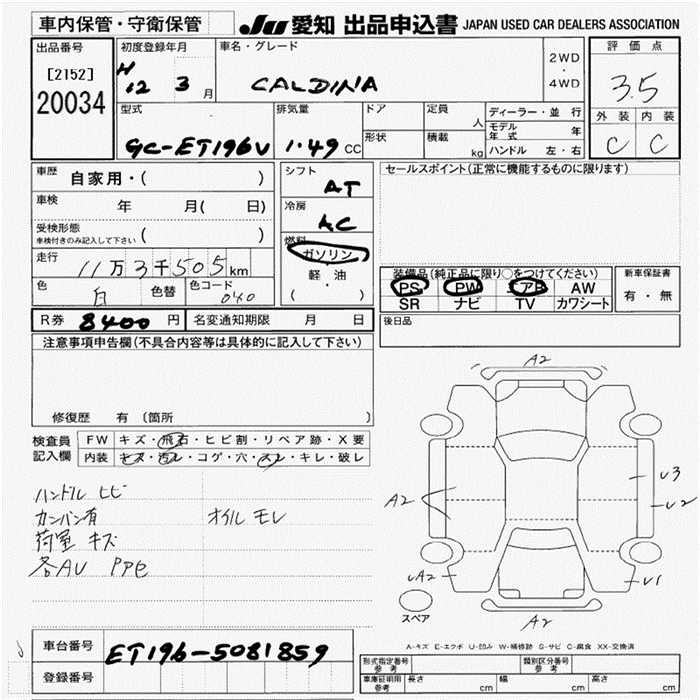 車内保管・守衛保管 JU 愛知 出品申込書 JAPAN USED CAR DEALERS ASSOCIATION
出品番号 初度登録年月 車名・グレード 評価点
[2152] H 12 3 月 CALDINA 2WD・4WD 3.5
20034
型式 排気量 ドア 定員 人 ディーラー・並行 外装 内装
GC-ET196V 1.49 CC 形状 積載 kg モデル年式 年 C C
ハンドル 左・右
車歴 自家用・( ) シフト AT セールスポイント(正常に機能するものに限ります)
車検 年 月( 日) 冷房 AC
受検形態 ( )
車検付きのみ記入して下さい
燃料 ガソリン
軽・油
( ・ )
走行 11万3千505km
色 白 色替 色コード 040
装備品(純正品に限り○をつけてください) 新車保証書
PS PW エアB AW 有・無
SR ナビ TV カワシート
R券 8400 円 名変通知期限 月 日 後日品
注意事項申告欄(不具合内容等は具体的に記入して下さい)
修復歴 有 (箇所 )
検査員記入欄 FW キズ・飛石・ヒビ割・リペア跡・X要
内装 キズ・汚レ・コゲ・穴・スレ・キレ・破レ
ハンドル ヒビ
カンバン有 オイル モレ
荷室 キズ
各AU PPセ
A2
A2
U3
U2
UA2
U1
A2
スペア
A-キズ E-エクボ U-凹み W-補修跡 S-サビ C-腐食 XX-交換済
車台番号 ET196-5081859
登録番号
形式指定番号 参考 類別区分番号 参考
車庫証明用 参考 長さ cm 幅 cm 高さ cm